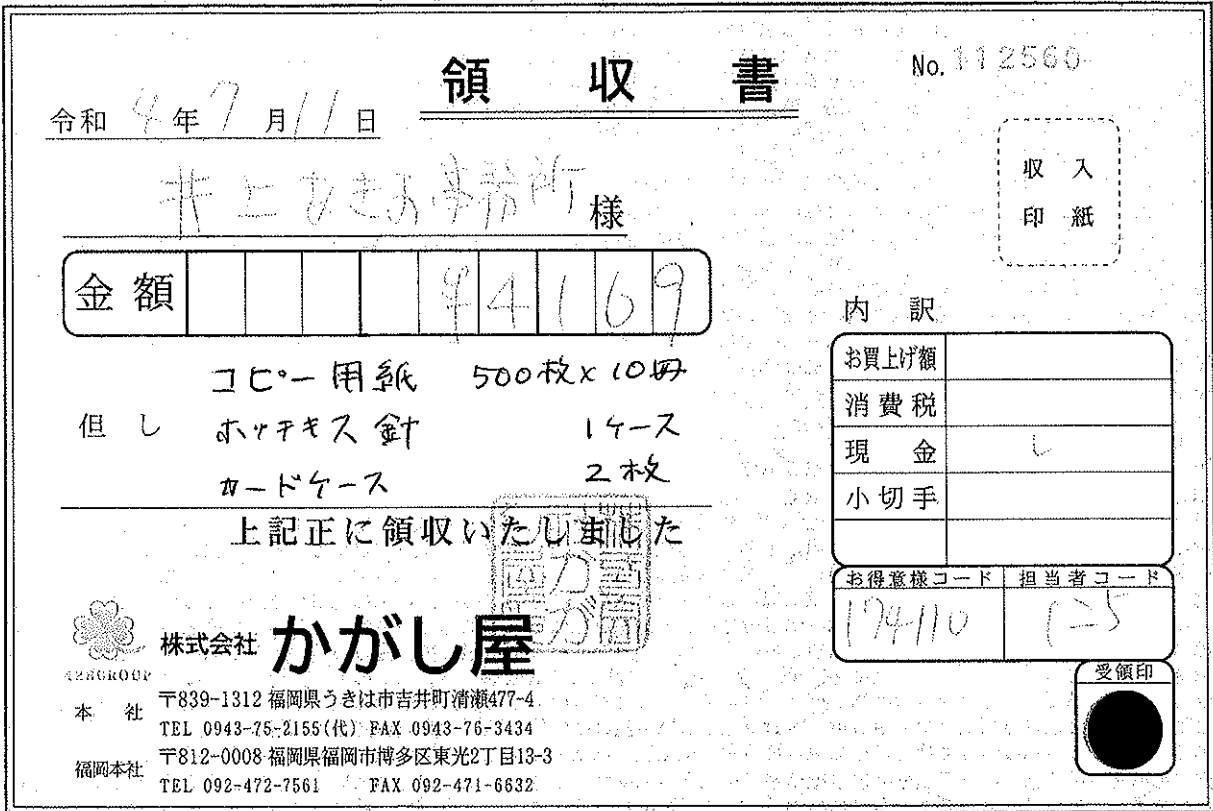 領収書
No. 112560
令和 4年 7月 11日
井上ひさお事務所 様
収入
印紙
金額 ¥44169
内訳
お買上げ額
消費税
現金 レ
小切手
但し
コピー用紙 500枚×10冊
ホッチキス針 1ケース
カードケース 2枚
上記正に領収いたしました
お得意様コード 担当者コード
174110
受領印
428GROUP
株式会社 かがし屋
本社 〒839-1312 福岡県うきは市吉井町清瀬477-4
TEL 0943-75-2155(代) FAX 0943-76-3434
福岡本社 〒812-0008 福岡県福岡市博多区東光2丁目13-3
TEL 092-472-7561 FAX 092-471-6632